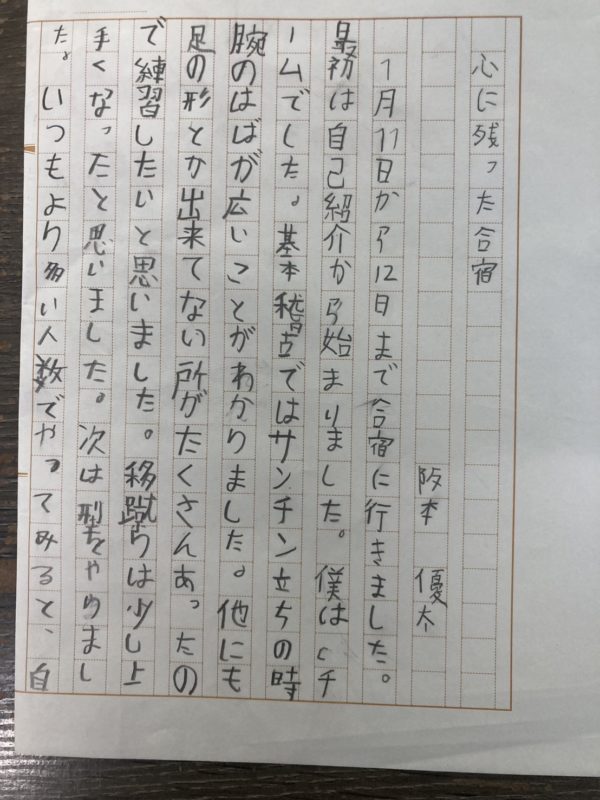 心に残った合宿
阪本 優太
1月11日から12日まで合宿に行きました。
最初は自己紹介から始まりました。僕はcチ
ームでした。基本稽古ではサンチン立ちの時
腕のはばが広いことがわかりました。他にも
足の形とか出来てない所がたくさんあったの
で練習したいと思いました。移蹴らは少し上
手くなったと思いました。次は型をやりまし
た。いつもより多い人数でやってみると、自